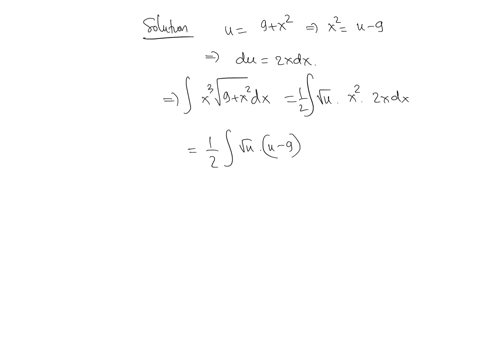 Solution u = 9+x² ⇒ x² = u-9
⇒ du = 2xdx.
⇒ ∫ x³√(9+x²) dx = 1/2 ∫ √u · x² · 2xdx
= 1/2 ∫ √u · (u-9)